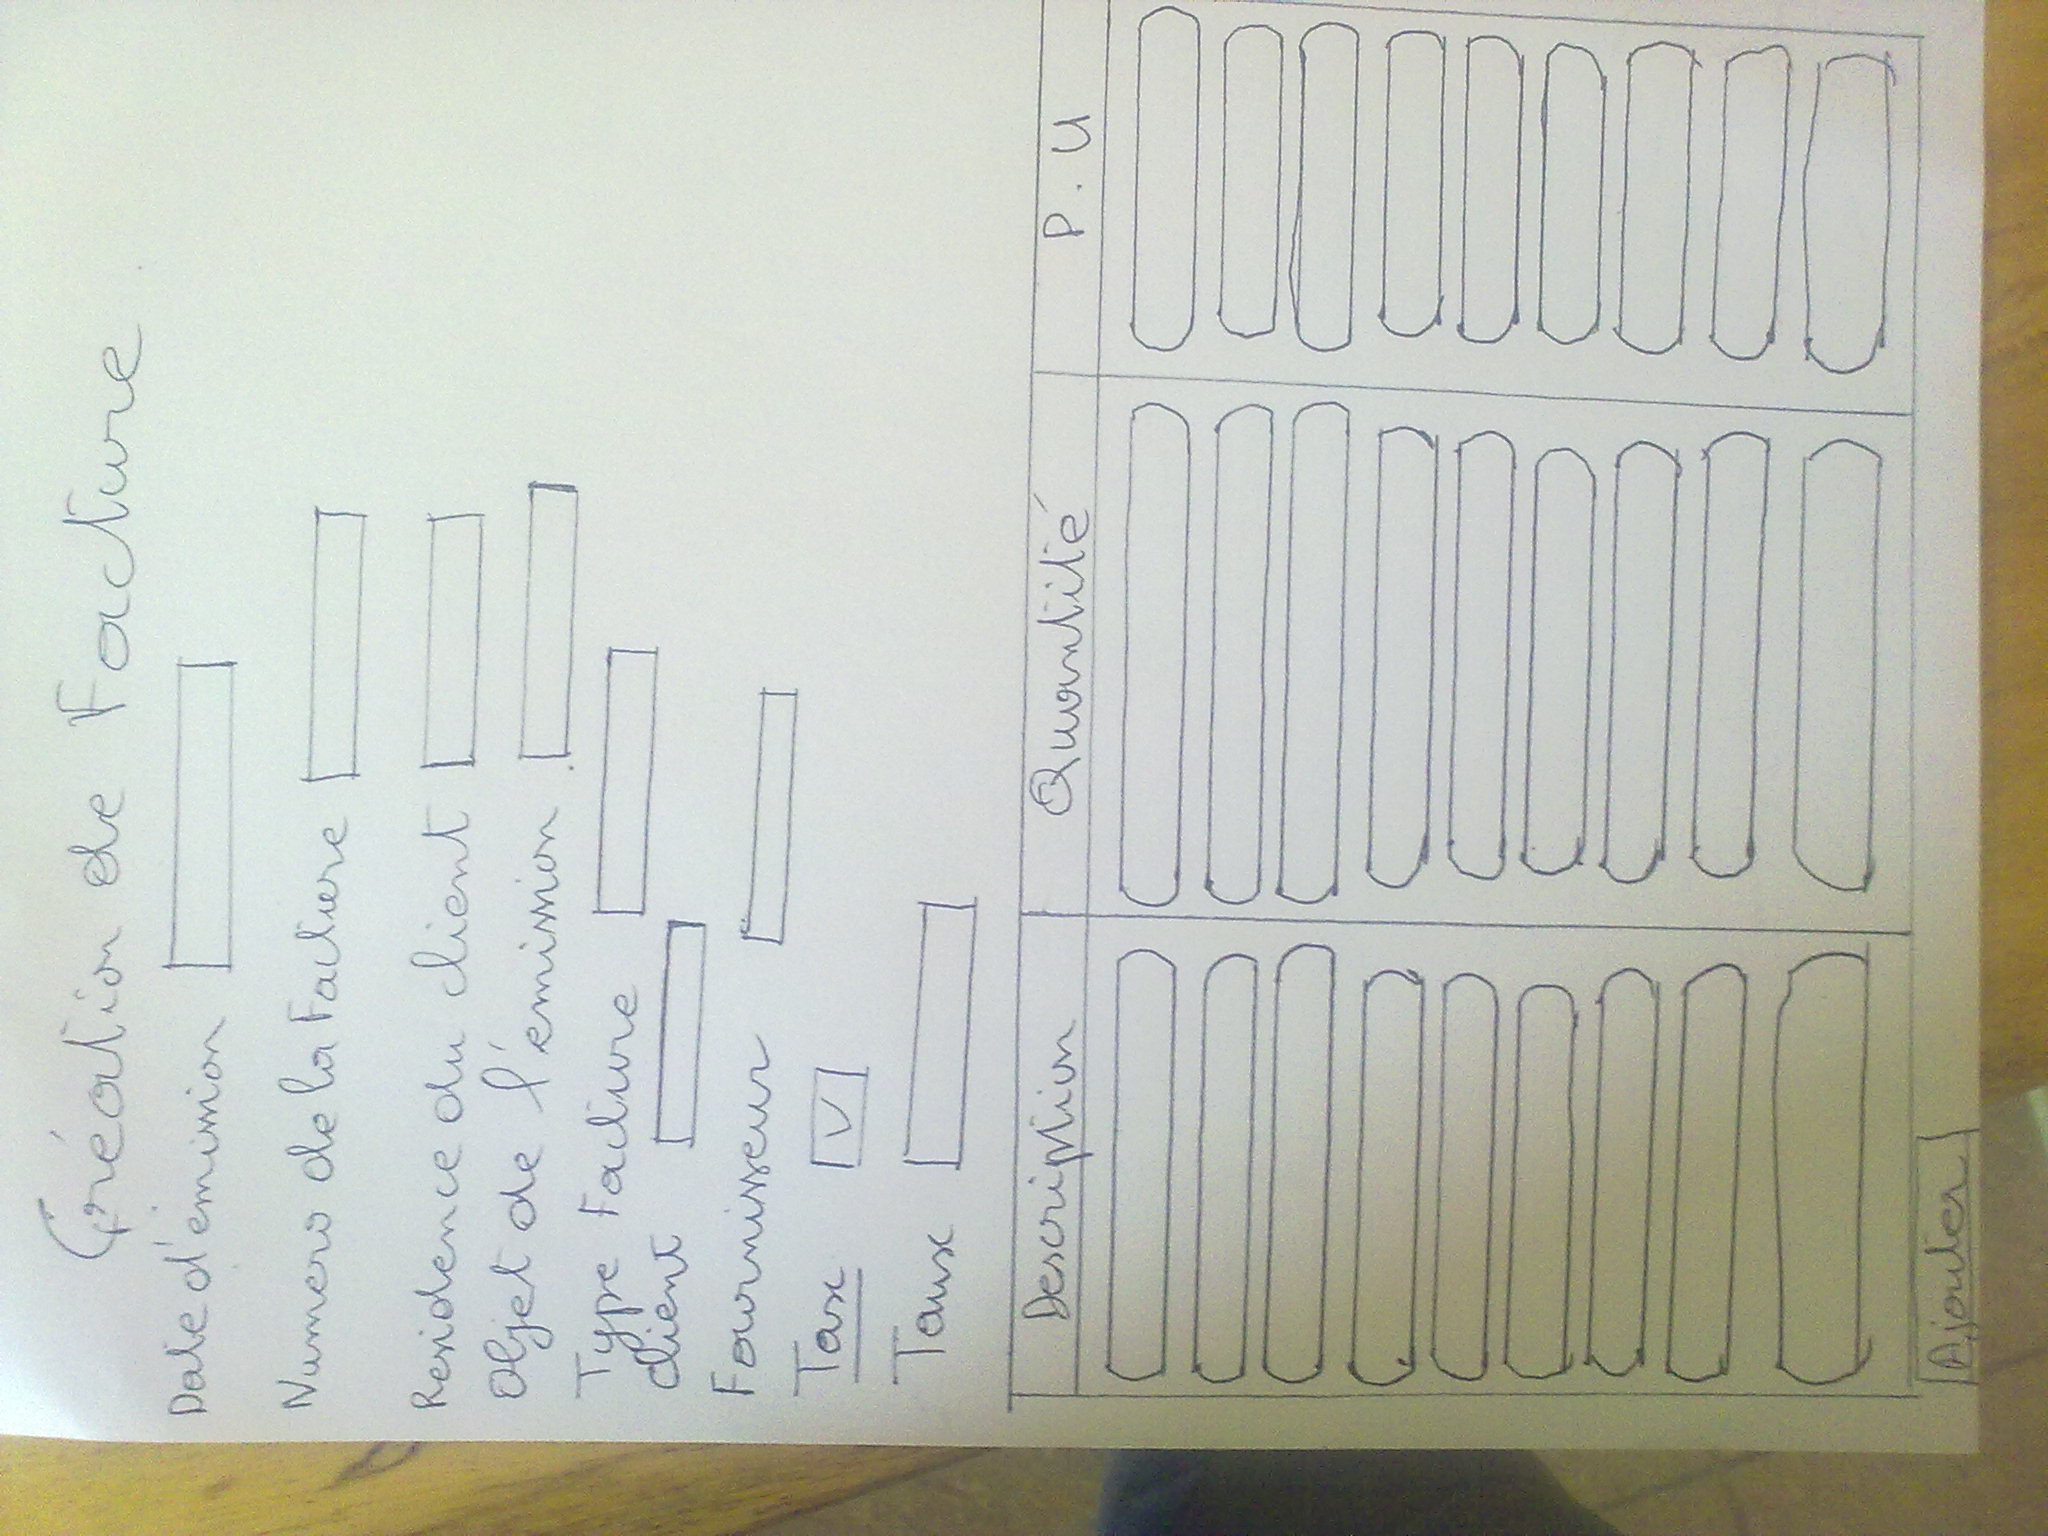 Création de Facture
Date d'émission
Numero de la Facture
Residence du client
Objet de l'émission
Type Facture
client
Fournisseur
Taxe
V
Taux
Description Quantité P.U
Ajouter